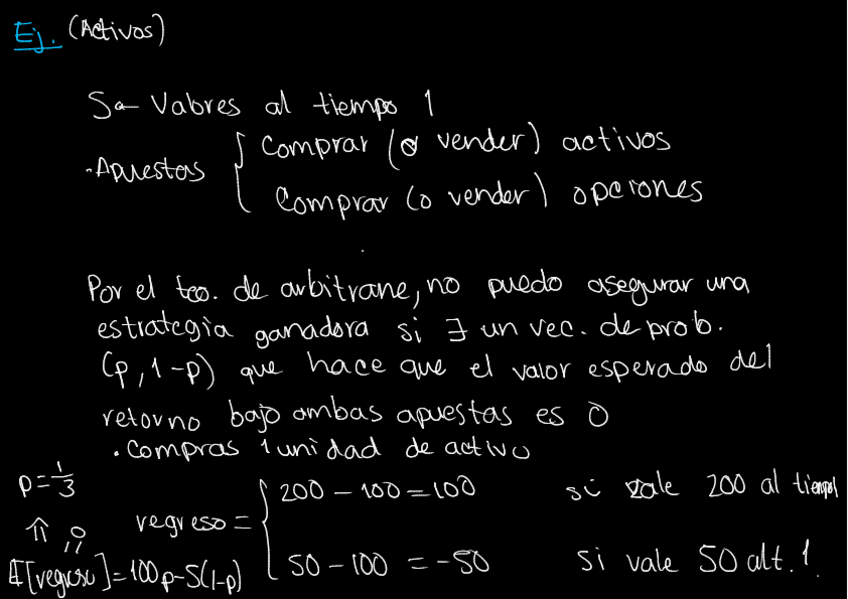 Ej. (Activos)
S← Valores al tiempo 1
·Apuestas { Comprar (o vender) activos
Comprar (o vender) opciones
Por el teo. de arbitrane, no puedo asegurar una
estrategia ganadora si ∃ un vec. de prob.
(p, 1-p) que hace que el valor esperado del
retorno bajo ambas apuestas es 0
· Compras 1 unidad de activo
p = 1/3
⇑
regreso = { 200 - 100 = 100 si vale 200 al tiempo 1
50 - 100 = -50 si vale 50 al t. 1.
0
=
E[regreso] = 100p - 5(1-p)